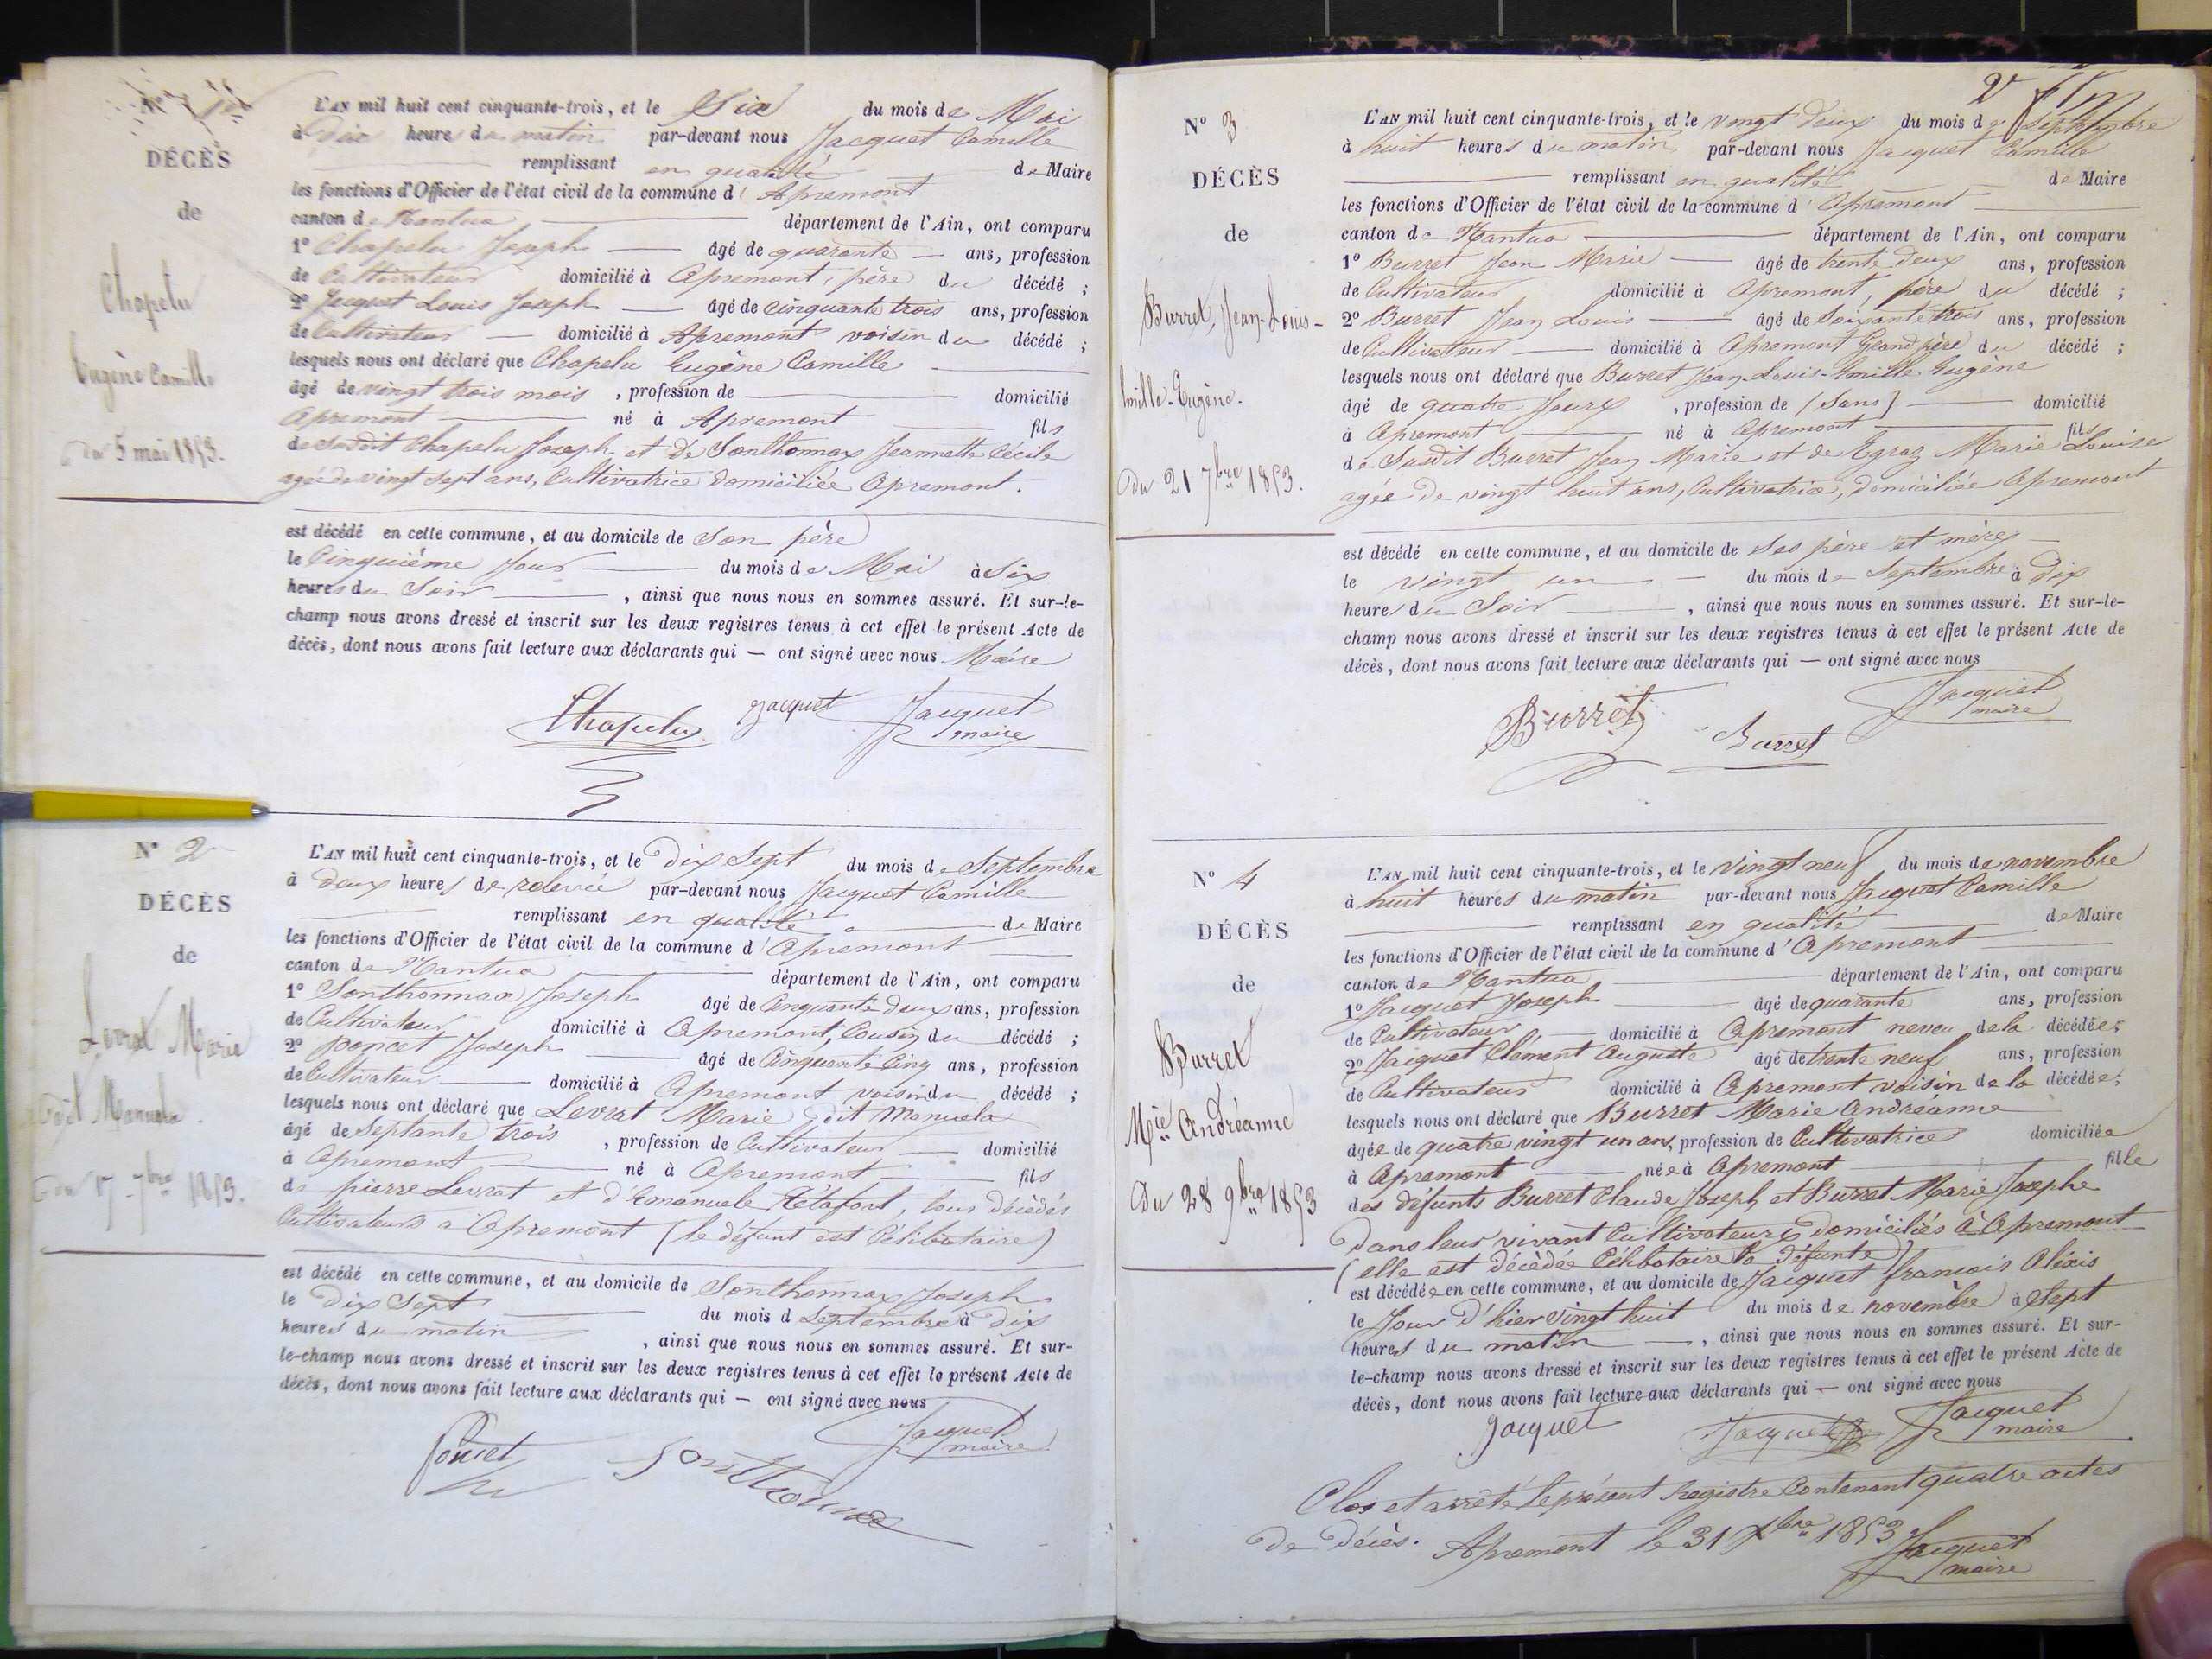 DÉCÈS
de
Chapelu
Eugène Camille
du 5 mai 1853.
L'AN mil huit cent cinquante-trois, et le Six du mois de Mai
à dix heures du matin par-devant nous Jacquet Camille
remplissant en qualité de Maire
les fonctions d'Officier de l'état civil de la commune d' Apremont
canton de Nantua département de l'Ain, ont comparu
1° Chapelu Joseph âgé de quarante ans, profession
de Cultivateur domicilié à Apremont, père du décédé ;
2° Jacquet Louis Joseph âgé de cinquante trois ans, profession
de Cultivateur domicilié à Apremont voisin du décédé ;
lesquels nous ont déclaré que Chapelu Eugène Camille
âgé de vingt trois mois , profession de domicilié
Apremont né à Apremont fils
de Susdit Chapelu Joseph et de Sonthonnax Jeannette Cécile
agée de vingt sept ans, Cultivatrice domiciliée Apremont.
est décédé en cette commune, et au domicile de Son père
le Cinquième Jour du mois de Mai à Six
heures du Soir , ainsi que nous nous en sommes assuré. Et sur-le-
champ nous avons dressé et inscrit sur les deux registres tenus à cet effet le présent Acte de
décès, dont nous avons fait lecture aux déclarants qui — ont signé avec nous Maire
Chapelu Jacquet Jacquet
maire
N° 2
DÉCÈS
de
Levrat Marie
dit Manuela.
du 17 7bre 1853.
L'AN mil huit cent cinquante-trois, et le dix Sept du mois de Septembre
à deux heures de relevée par-devant nous Jacquet Camille
remplissant en qualité de Maire
les fonctions d'Officier de l'état civil de la commune d' Apremont
canton de Nantua département de l'Ain, ont comparu
1° Sonthonnax Joseph âgé de Cinquante deux ans, profession
de Cultivateur domicilié à Apremont, Cousin du décédé ;
2° poncet Joseph âgé de Cinquante Cinq ans, profession
de Cultivateur domicilié à Apremont voisin du décédé ;
lesquels nous ont déclaré que Levrat Marie dit Manuela
âgé de Septante trois , profession de Cultivateur domicilié
à Apremont né à Apremont fils
de pierre Levrat et d'Emanuele tous décédés
Cultivateurs à Apremont (le défunt est Célibataire)
est décédé en cette commune, et au domicile de Sonthonnax Joseph
le dix Sept du mois d Septembre à dix
heures du matin , ainsi que nous nous en sommes assuré. Et sur-
le-champ nous avons dressé et inscrit sur les deux registres tenus à cet effet le présent Acte de
décès, dont nous avons fait lecture aux déclarants qui — ont signé avec nous
Poncet Sonthonnax Jacquet
maire
2
N° 3
DÉCÈS
de
Burret, Jean-Louis-
Emille-Eugène.
du 21 7bre 1853.
L'AN mil huit cent cinquante-trois, et le vingt deux du mois de Septembre
à huit heures du matin par-devant nous Jacquet Camille
remplissant en qualité de Maire
les fonctions d'Officier de l'état civil de la commune d' Apremont
canton de Nantua département de l'Ain, ont comparu
1° Burret Jean Marie âgé de trente deux ans, profession
de Cultivateur domicilié à Apremont, père du décédé ;
2° Burret Jean Louis âgé de Soixante trois ans, profession
de Cultivateur domicilié à Apremont Grand père du décédé ;
lesquels nous ont déclaré que Burret Jean-Louis-Emille-Eugène
âgé de quatre Jours , profession de (Sans) domicilié
à Apremont né à Apremont fils
de Susdit Burret Jean Marie et de Egraz Marie Louise
agée de vingt huit ans, Cultivatrice, domiciliée Apremont
est décédé en cette commune, et au domicile de Ses père et mère
le vingt un du mois de Septembre à dix
heures du Soir , ainsi que nous nous en sommes assuré. Et sur-le-
champ nous avons dressé et inscrit sur les deux registres tenus à cet effet le présent Acte de
décès, dont nous avons fait lecture aux déclarants qui — ont signé avec nous
Burret Burret Jacquet
maire
N° 4
DÉCÈS
de
Burret
Mie Andréanne
Du 28 9bre 1853
L'AN mil huit cent cinquante-trois, et le Vingt neuf du mois de novembre
à huit heures du matin par-devant nous Jacquet Camille
remplissant en qualité de Maire
les fonctions d'Officier de l'état civil de la commune d' Apremont
canton de Nantua département de l'Ain, ont comparu
1° Jacquet Joseph âgé de quarante ans, profession
de Cultivateur domicilié à Apremont neveu de la décédée ;
2° Jacquet Clément Auguste âgé de trente neuf ans, profession
de Cultivateur domicilié à Apremont voisin de la décédée ;
lesquels nous ont déclaré que Burret Marie Andréanne
âgée de quatre vingt un ans, profession de Cultivatrice domiciliée
à Apremont née à Apremont fille
des défunts Burret Claude Joseph et Burret Marie Josephe
dans leur vivant Cultivateurs domiciliés à Apremont
(elle est décédée Célibataire la défunte)
est décédée en cette commune, et au domicile de Jacquet francois Alixis
le Jour d'hier Vingt huit du mois de novembre à Sept
heures du matin , ainsi que nous nous en sommes assuré. Et sur-
le-champ nous avons dressé et inscrit sur les deux registres tenus à cet effet le présent Acte de
décès, dont nous avons fait lecture aux déclarants qui — ont signé avec nous
Jacquet Jacquet Jacquet
maire
Clos et arrêté le présent Registre Contenant quatre actes
de décès. Apremont le 31 Xbre 1853 Jacquet
maire